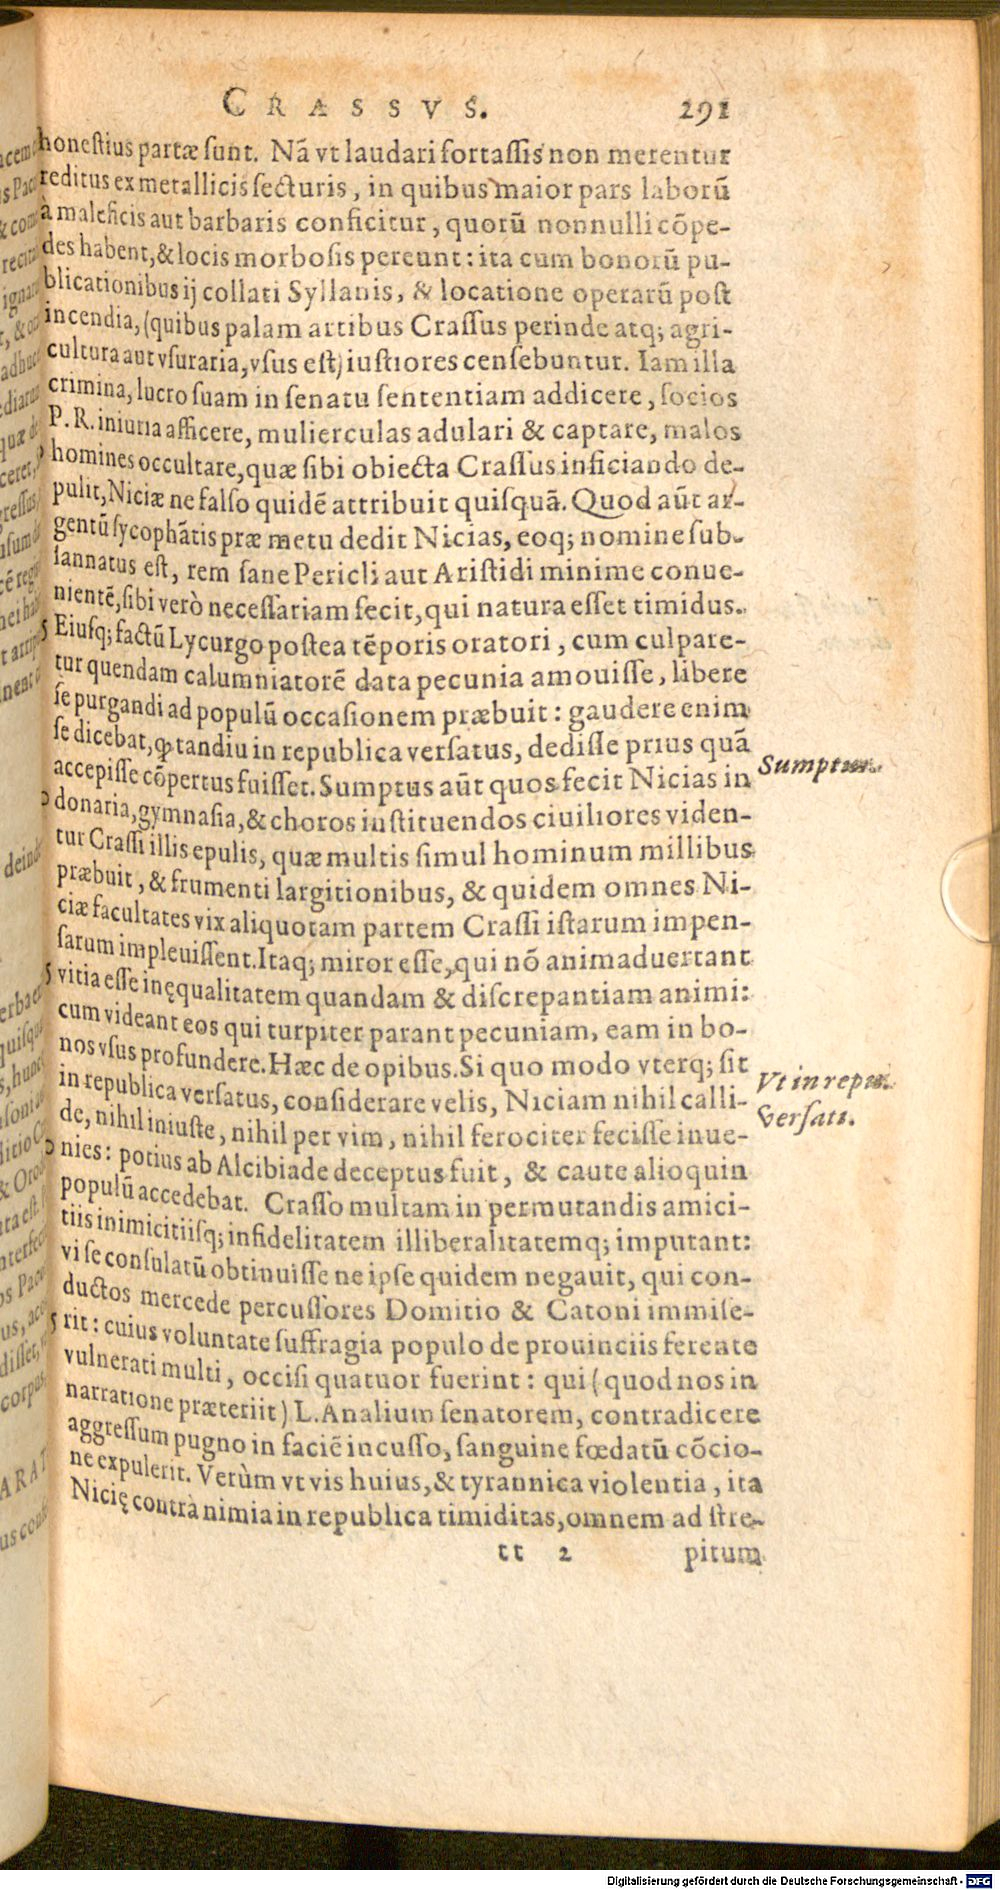 CRASSVS. 291
honestius partæ sunt. Nã vt laudari fortassis non merentur
reditus ex metallicis secturis, in quibus maior pars laborũ
à maleficis aut barbaris conficitur, quorũ nonnulli cõpe-
des habent, & locis morbosis pereunt: ita cum bonorũ pu-
blicationibus ij collati Syllanis, & locatione operarũ post
incendia, (quibus palam artibus Crassus perinde atq; agri-
cultura aut vsuraria, vsus est) iustiores censebuntur. Iam illa
crimina, lucro suam in senatu sententiam addicere, socios
P. R. iniuria afficere, mulierculas adulari & captare, malos
homines occultare, quæ sibi obiecta Crassus inficiando de-
pulit, Niciæ ne falso quidẽ attribuit quisquã. Quod aũt ar-
gentũ sycophãtis præ metu dedit Nicias, eoq; nomine sub-
sannatus est, rem sane Pericli aut Aristidi minime conue-
nientẽ, sibi verò necessariam fecit, qui natura esset timidus.
Eiusq; factũ Lycurgo postea tẽporis oratori, cum culpare-
tur quendam calumniatorẽ data pecunia amouisse, libere
se purgandi ad populũ occasionem præbuit: gaudere enim
se dicebat, ꝙ tandiu in republica versatus, dedisse prius quã
accepisse cõpertus fuisset. Sumptus aũt quos fecit Nicias in
Sumptus.
donaria, gymnasia, & choros instituendos ciuiliores viden-
tur Crassi illis epulis, quæ multis simul hominum millibus
præbuit, & frumenti largitionibus, & quidem omnes Ni-
ciæ facultates vix aliquotam partem Crassi istarum impen-
sarum impleuissent. Itaq; miror esse, qui nõ animaduertant
vitia esse inęqualitatem quandam & discrepantiam animi:
cum videant eos qui turpiter parant pecuniam, eam in bo-
nos vsus profundere. Hæc de opibus. Si quo modo vterq; sit
Vt in repu.
in republica versatus, considerare velis, Niciam nihil calli-
versati.
de, nihil iniuste, nihil per vim, nihil ferociter fecisse inue-
nies: potius ab Alcibiade deceptus fuit, & caute alioquin
populũ accedebat. Crasso multam in permutandis amici-
tiis inimicitiisq; infidelitatem illiberalitatemq; imputant:
vi se consulatũ obtinuisse ne ipse quidem negauit, qui con-
ductos mercede percussores Domitio & Catoni immise-
rit: cuius voluntate suffragia populo de prouinciis ferente
vulnerati multi, occisi quatuor fuerint: qui (quod nos in
narratione præteriit) L. Analium senatorem, contradicere
aggressum pugno in faciẽ incusso, sanguine fœdatũ cõcio-
ne expulerit. Verùm vt vis huius, & tyrannica violentia, ita
Nicię contrà nimia in republica timiditas, omnem ad stre-
tt 2 pitum
Digitalisierung gefördert durch die Deutsche Forschungsgemeinschaft - DFG